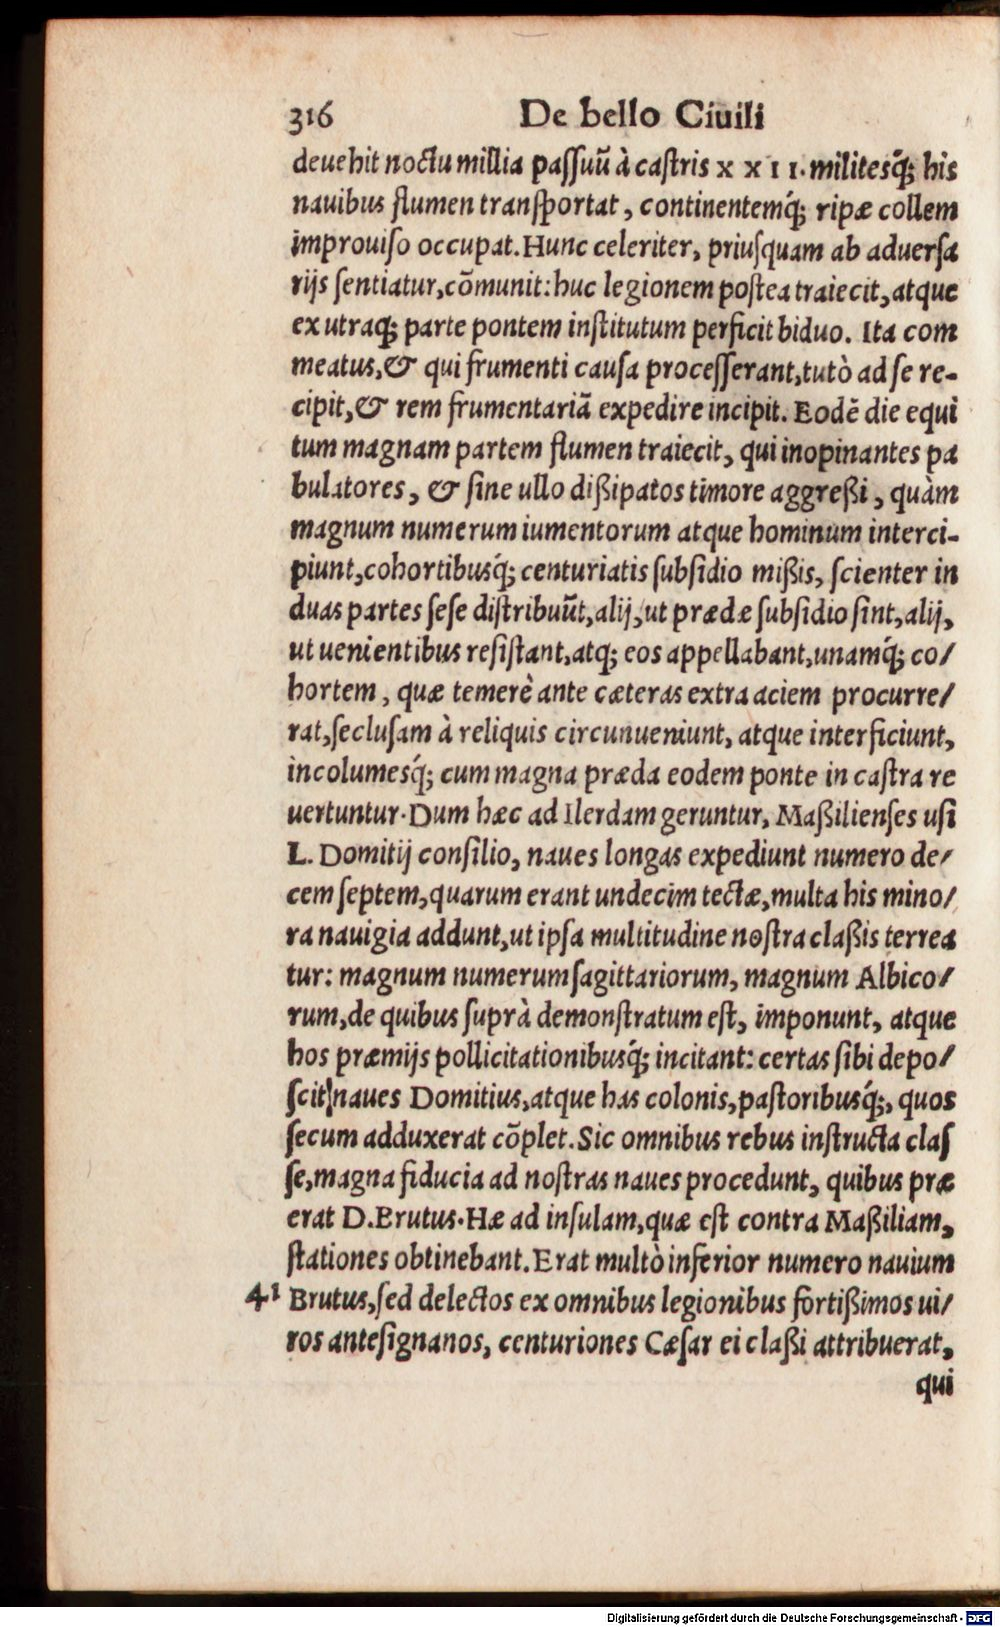 316 De bello Ciuili
deuehit noctu millia paſſuū à caſtris x x i i. militesq́; his
nauibus flumen tranſportat, continentemq́; ripæ collem
improuiſo occupat. Hunc celeriter, priuſquam ab aduerſa
rijs ſentiatur, cōmunit: huc legionem poſtea traiecit, atque
ex utraq; parte pontem inſtitutum perficit biduo. Ita com
meatus, & qui frumenti cauſa proceſſerant, tutò ad ſe re-
cipit, & rem frumentariā expedire incipit. Eodē die equi
tum magnam partem flumen traiecit, qui inopinantes pa
bulatores, & ſine ullo dißipatos timore aggreßi, quàm
magnum numerum iumentorum atque hominum interci-
piunt, cohortibusq́; centuriatis ſubſidio mißis, ſcienter in
duas partes ſeſe diſtribuūt, alij, ut prædæ ſubſidio ſint, alij,
ut uenientibus reſiſtant, atq; eos appellabant, unamq́; co/
hortem, quæ temerè ante cæteras extra aciem procurre/
rat, ſecluſam à reliquis circunueniunt, atque interficiunt,
incolumesq́; cum magna præda eodem ponte in caſtra re
uertuntur. Dum hæc ad Ilerdam geruntur, Maßilienſes uſi
L. Domitij conſilio, naues longas expediunt numero de/
cem ſeptem, quarum erant undecim tectæ, multa his mino/
ra nauigia addunt, ut ipſa multitudine noſtra claßis terrea
tur: magnum numerum ſagittariorum, magnum Albico/
rum, de quibus ſuprà demonſtratum eſt, imponunt, atque
hos præmijs pollicitationibusq́; incitant: certas ſibi depo/
ſcit naues Domitius, atque has colonis, paſtoribusq́;, quos
ſecum adduxerat cōplet. Sic omnibus rebus inſtructa claſ
ſe, magna fiducia ad noſtras naues procedunt, quibus præ
erat D. Brutus. Hæ ad inſulam, quæ eſt contra Maßiliam,
ſtationes obtinebant. Erat multò inferior numero nauium
41 Brutus, ſed delectos ex omnibus legionibus fortißimos ui/
ros anteſignanos, centuriones Cæſar ei claßi attribuerat,
qui
Digitalisierung gefördert durch die Deutsche Forschungsgemeinschaft - DFG